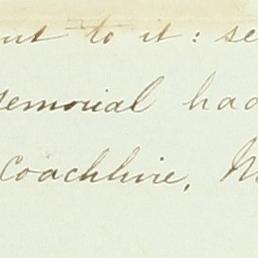 to it: se
memorial had
Coachline, M